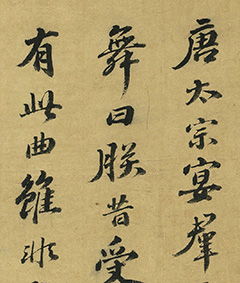 唐太宗宴羣
舞曰朕昔受
有此曲雖非